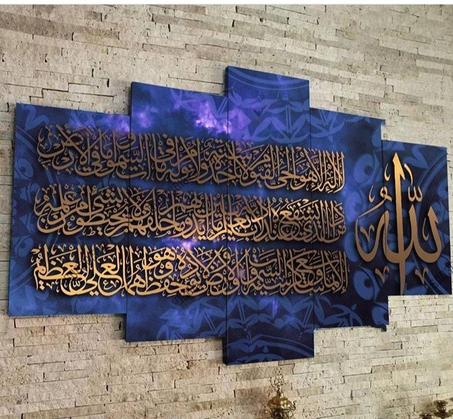 الله لا إله إلا هو الحي القيوم لا تأخذه سنة ولا نوم له ما في السموات وما في الأرض
من ذا الذي يشفع عنده إلا بإذنه يعلم ما بين أيديهم وما خلفهم ولا يحيطون بشيء من علمه
إلا بما شاء وسع كرسيه السموات والأرض ولا يئوده حفظهما وهو العلي العظيم
الله